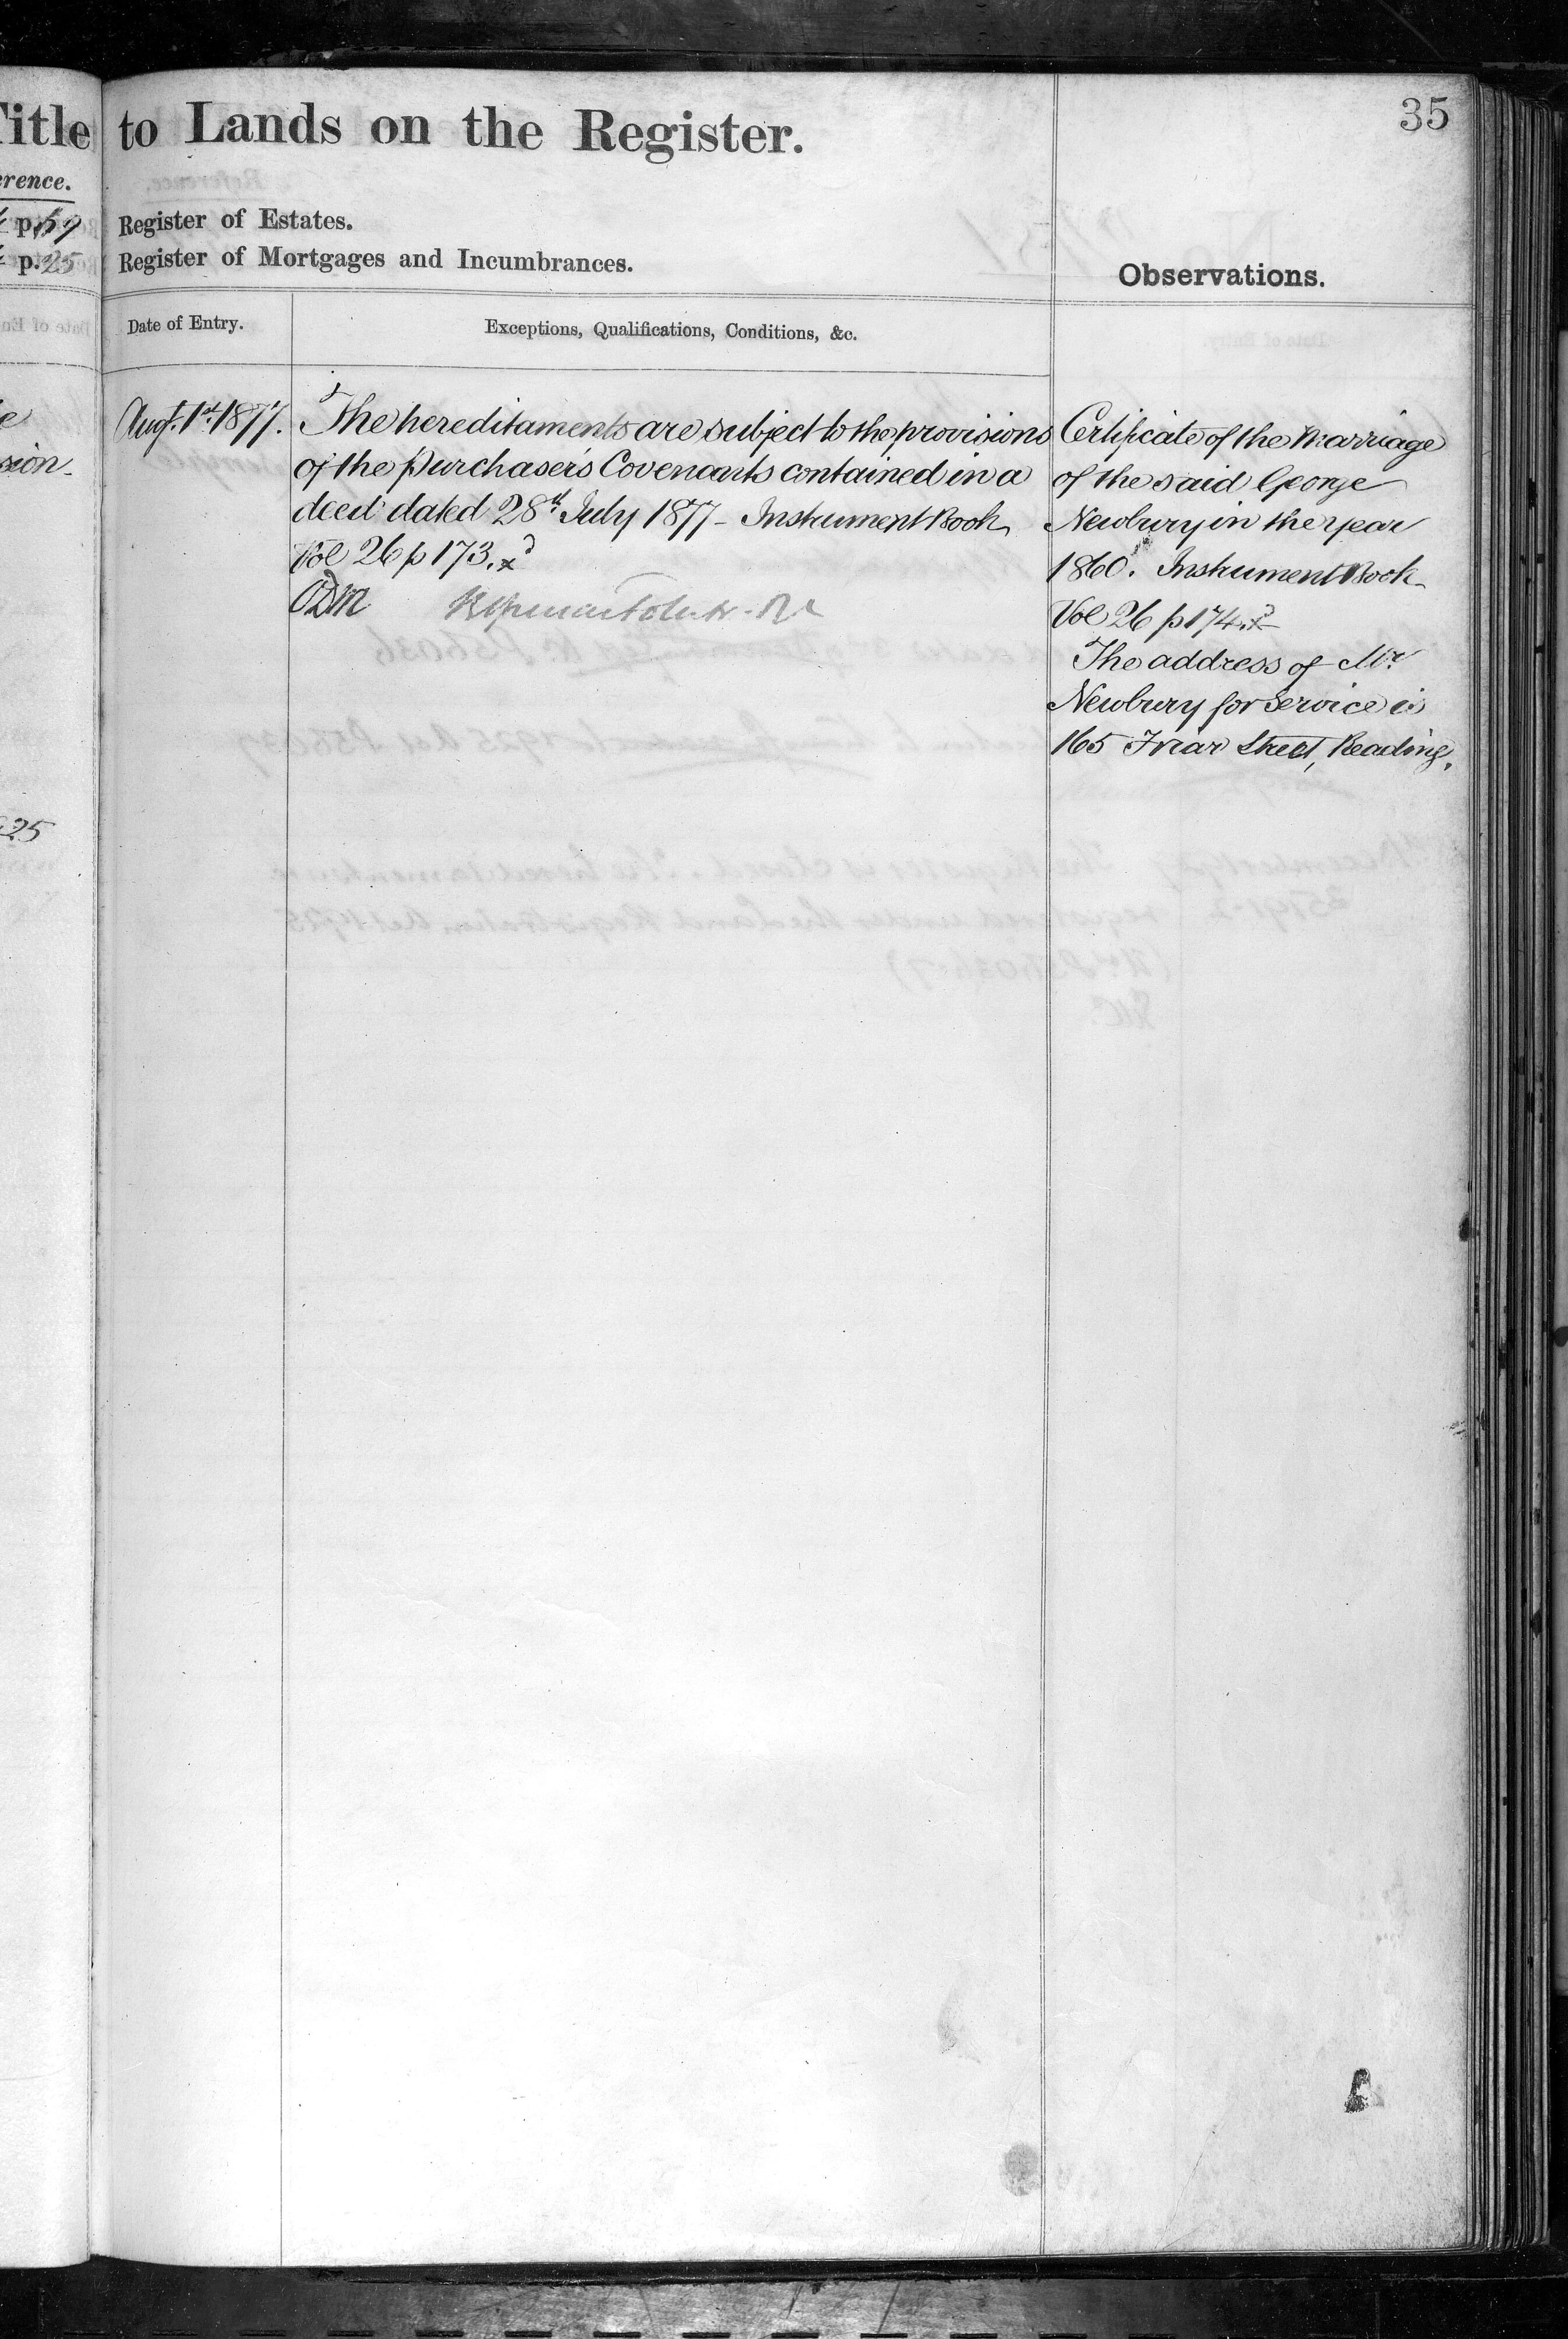 35
Title to Lands on the Register.
p. 25
Register of Estates.
Register of Mortgages and Incumbrances.
Observations.
Date of Entry.
Exceptions, Qualifications, Conditions, &c.
Augt. 1st. 1877.
The hereditaments are subject to the provisions
of the Purchaser's Covenants contained in a
deed dated 28th July 1877 - Instrument Book
Vol 26 p 173.
Certificate of the Marriage
of the said George
Newbury in the year
1860. Instrument Book
Vol 26 p 174.
The address of Mr
Newbury for service is
165 Friar Street, Reading.
25